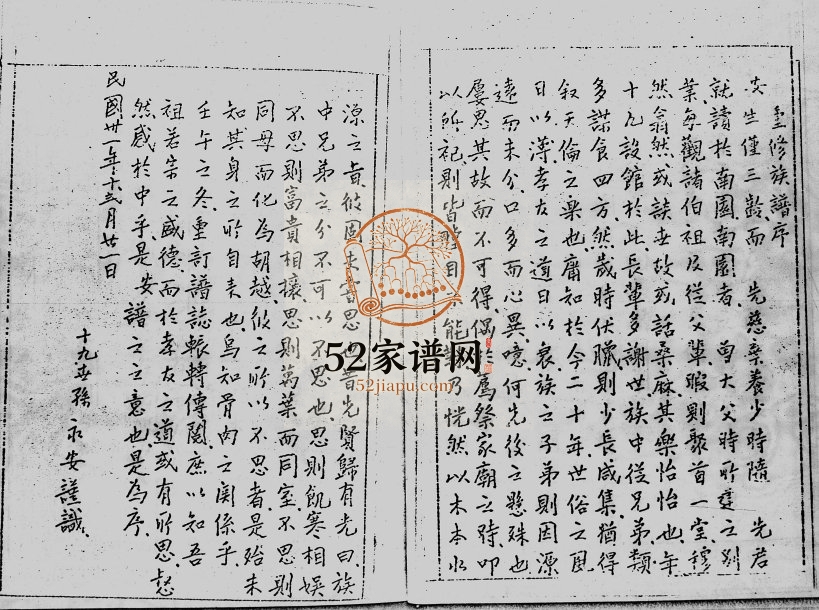 重修族譜序
安生僅三齡而 先慈棄養少時隨 先君
就讀於南園南園者 曾大父時所建之別
業每觀諸伯祖及從父輩暇則聚首一堂穆
然翕然或談世故或話桑麻其樂怡怡也年
十九設館於此長輩多謝世族中從兄弟類
多謀食四方然歲時伏臘則少長咸集猶得
叙天倫之樂也庸知於今二十年世俗之風
日以薄孝友之道日以衰族之子弟則因源
遠而未分口多而心異噫何先後之懸殊也
屢思其故而不可得偶於薦祭家廟之時叩
以所祀則皆 目 能 乃恍然以木本水
源之貴彼固未嘗思 昔先賢歸有光曰族
中兄弟之分不可以不思也思則飢寒相娛
不思則富貴相攘思則萬葉而同室不思則
同母而化為胡越彼之所以不思者是殆未
知其身之所自來也烏知骨肉之関係乎
壬午之冬重訂譜誌輾轉傳閱庶以知吾
祖若宗之盛德而於孝友之道或有所思惄
然感於中乎是安譜之之意也是為序
民國卅一年十二月廿一日
十九世孫 永安謹識
52家谱网
52jiapu.com